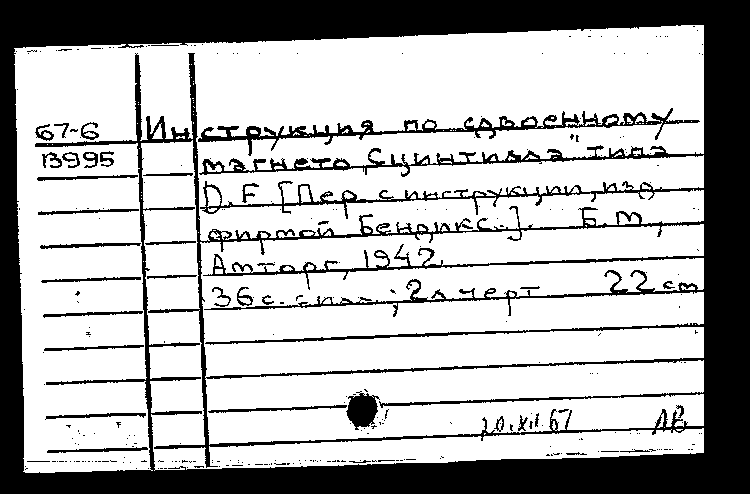 67-6 Инструкция по сдвоенному
13995 магнето „Сцинтилла" типа
D.F [Пер. с инструкции, изд.
фирмой Бендикс..]. Б.м.,
Амторг, 1942.
36 с. с илл.; 2 л черт 22 см
20.XII.67 ЛВ